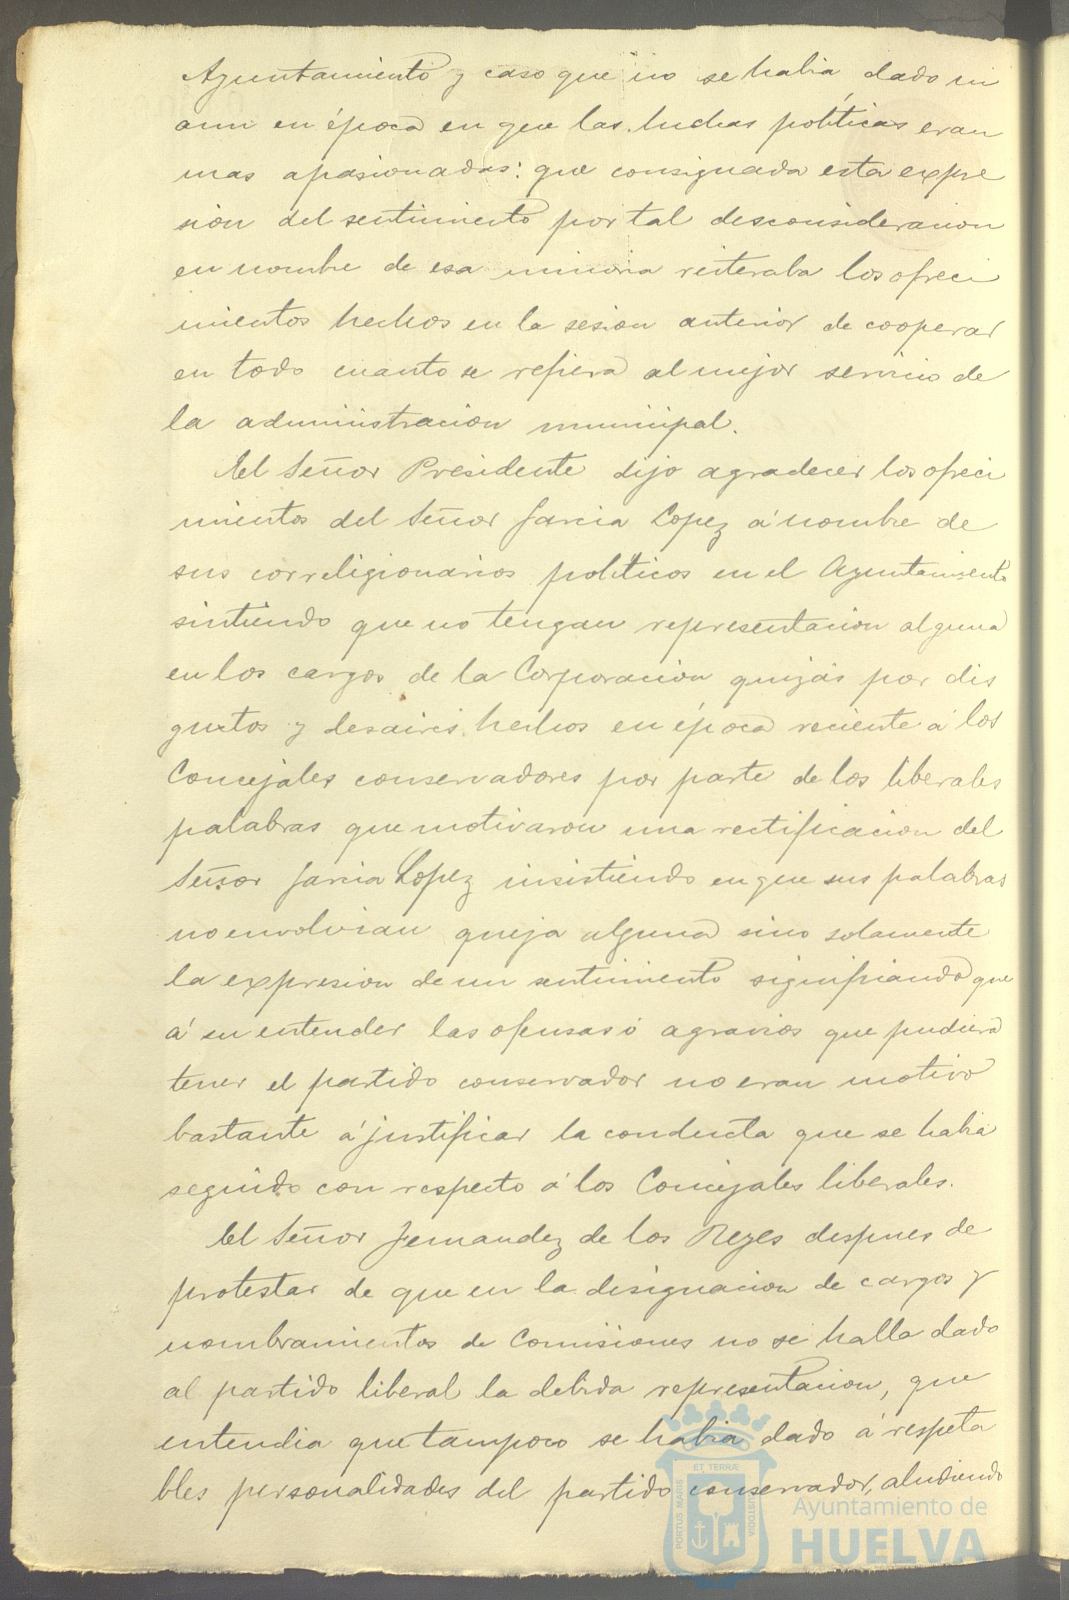 Ayuntamiento y caso que no se habia dado ni
aun en época en que las luchas políticas eran
mas apasionadas: que consignada esta expre
sion del sentimiento por tal desconsideracion
en nombre de esa minoria reiteraba los ofreci
mientos hechos en la sesion anterior de cooperar
en todo cuanto se refiera al mejor servicio de
la administracion municipal.
El Señor Presidente dijo agradecer los ofreci
mientos del Señor Garcia Lopez á nombre de
sus correligionarios políticos en el Ayuntamiento
sintiendo que no tengan representacion alguna
en los cargos de la Corporacion quizás por dis
gustos y desaires hechos en época reciente á los
Concejales conservadores por parte de los liberales
palabras que motivaron una rectificacion del
Señor Garcia Lopez insistiendo en que sus palabras
no envolvian queja alguna sino solamente
la expresion de un sentimiento significando que
á su entender las ofensas ó agravios que pudiera
tener el partido conservador no eran motivo
bastante á justificar la conducta que se habia
seguido con respecto á los Concejales liberales.
El Señor Fernandez de los Reyes despues de
protestar de que en la designacion de cargos y
nombramientos de Comisiones no se halla dado
al partido liberal la debida representacion, que
entendia que tampoco se habia dado á respeta
bles personalidades del partido conservador, aludiendo
ET TERRÆ
PORTUS MARIS
CUSTODIA
Ayuntamiento de
HUELVA